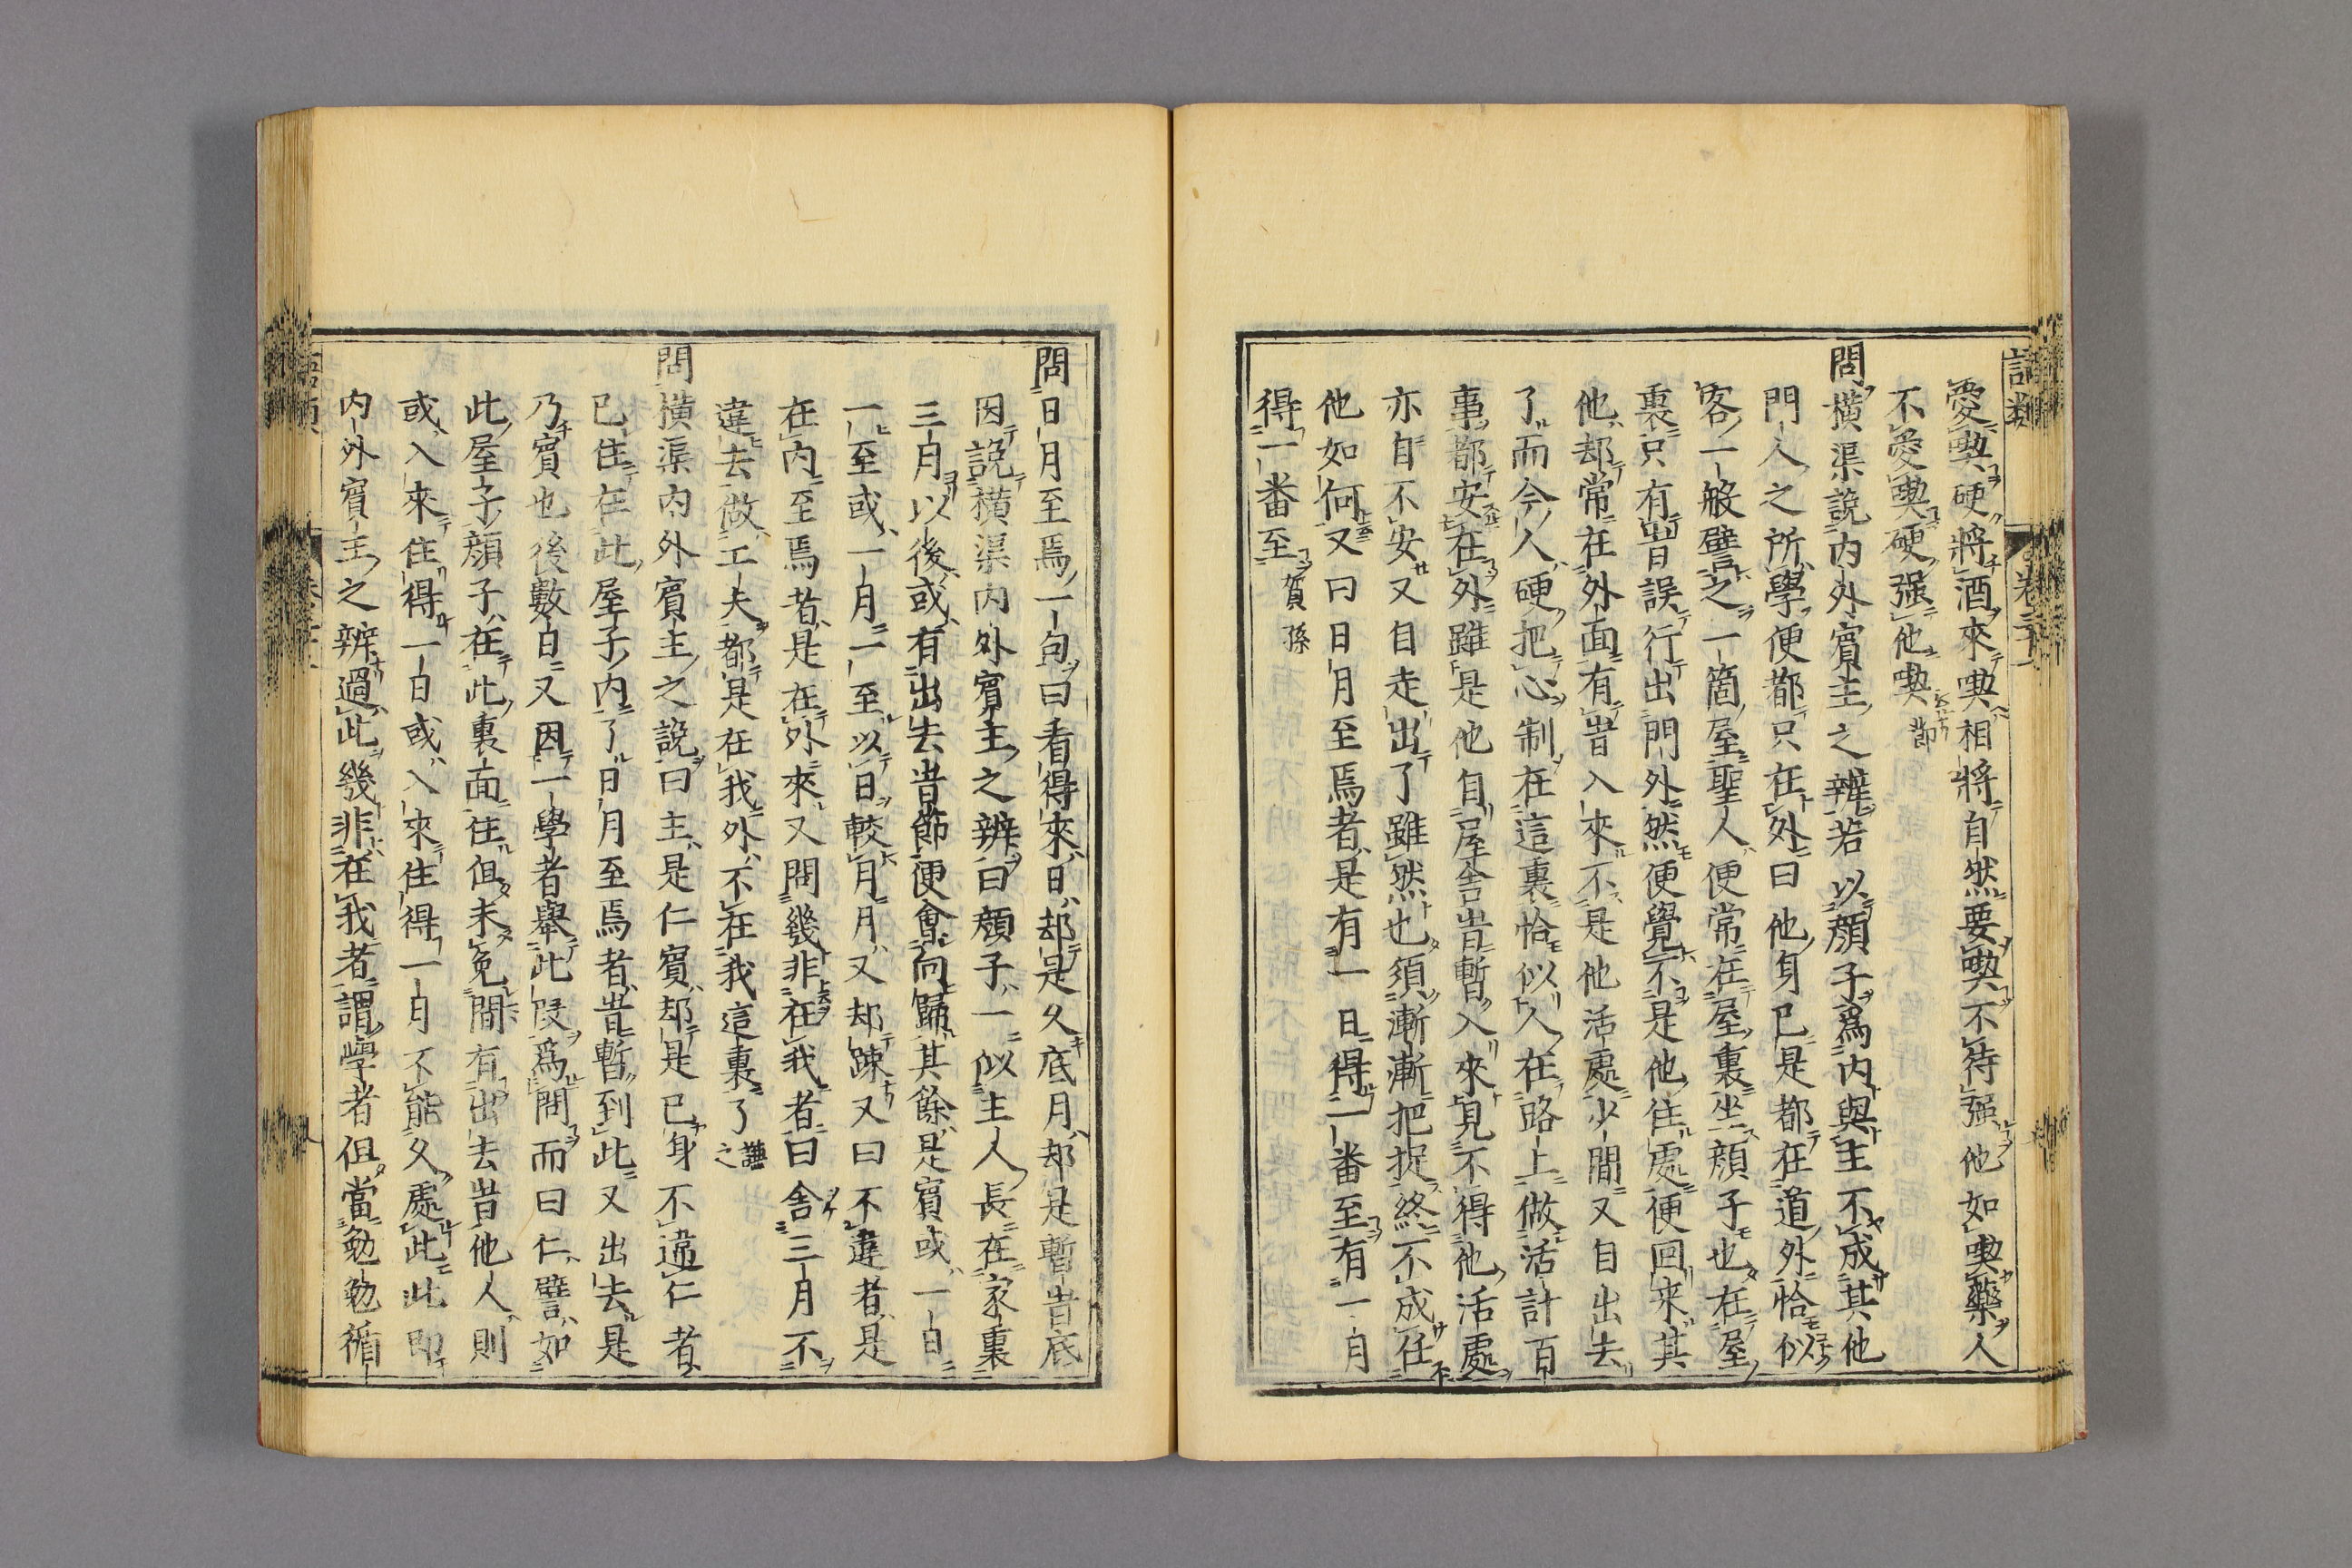 語類
卷三十一
愛喫硬將酒來喫相將自然要喫不待强他如喫藥人
不愛喫硬强他喫節
問橫渠說內外賓主之辨若以顏子爲內與主不成其他
門人之所學便都只在外曰他身已是都在道外恰似
客一般譬之一箇屋聖人便常在屋裏坐顏子也在屋
裏只有時誤行出門外然便覺不是他住處便回來其
他却常在外面有時入來不是他活處少間又自出去
了而今人硬把心制在這裏恰似人在路上做活計百
事都安在外雖是他自屋舍時暫入來見不得他活處
亦自不安又自走出了雖然也須漸漸把捉終不成任
他如何又曰日月至焉者是有一日得一番至有一月
得一番至賀孫
問日月至焉一句曰看得來日却是久底月却是暫時底
因說橫渠內外賓主之辨曰顏子一似主人長在家裏
三月以後或有出去時節便會向歸其餘是賓或一日
一至或一月一至以日較月月又却疎又曰不違者是
在內至焉者是在外來又問幾非在我者曰舍三月不
違去做工夫都是在我外不在我這裏了謙之
問橫渠內外賓主之說曰主是仁賓却是已身不違仁者
已住在此屋子內了日月至焉者時暫到此又出去是
乃賓也後數日又因一學者舉此段爲問而曰仁譬如
此屋子顏子在此裏面住但未免間有出去時他人則
或入來住得一日或入來住得一月不能久處此此即
內外賓主之辨過此幾非在我者謂學者但當勉勉循